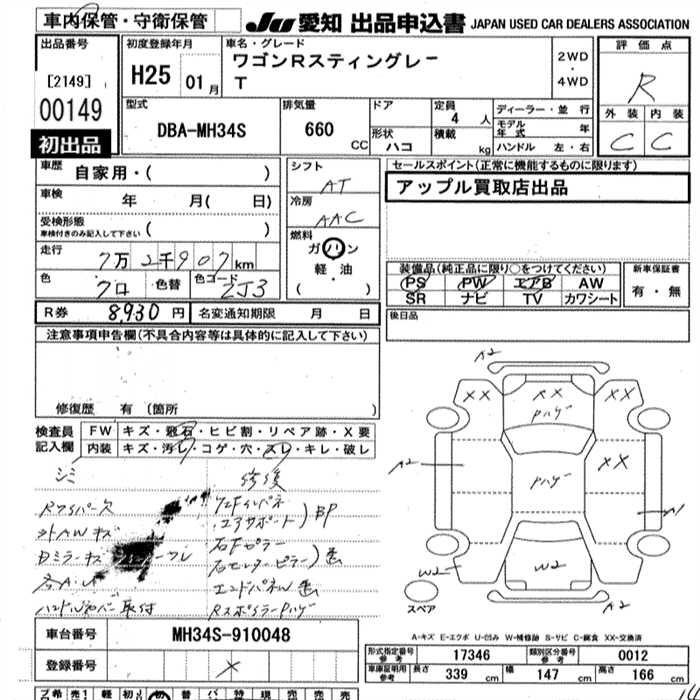 車内保管・守衛保管
JU 愛知 出品申込書 JAPAN USED CAR DEALERS ASSOCIATION
出品番号
[2149]
00149
初出品
初度登録年月
H25 01月
車名・グレード
ワゴンRスティングレー
T
2WD
・
4WD
評価点
R
外装 内装
C C
型式
DBA-MH34S
排気量
660 CC
ドア
形状
ハコ
定員
4 人
積載 kg
ディーラー・並行
モデル年式 年
ハンドル 左・右
車歴
自家用・( )
車検
年 月( 日)
受検形態
車検付きのみ記入して下さい ( )
走行
7万2千907km
色
クロ
色替
色コード
ZJ3
シフト
AT
冷房
AAC
燃料
ガソリン
軽・油
( )
セールスポイント(正常に機能するものに限ります)
アップル買取店出品
装備品(純正品に限り○をつけてください)
PS PW エアB AW
SR ナビ TV カワシート
新車保証書
有・無
R券 8930円
名変通知期限 月 日
後日品
注意事項申告欄(不具合内容等は具体的に記入して下さい)
修復歴 有 (箇所 )
検査員記入欄
FW キズ・飛石・ヒビ割・リペア跡・X要
内装 キズ・汚レ・コゲ・穴・スレ・キレ・破レ
シミ
修復
エアサポート)BP
右Fピラー
右センターピラー
エンドパネル
ハンドルカバー取付
A2
XX
XX
XX
Pハゲ
A2
Pハゲ
XX
A1
W2
W2
A2
スペア
A-キズ E-エクボ U-凹み W-補修跡 S-サビ C-腐食 XX-交換済
車台番号
MH34S-910048
登録番号
×
形式指定番号
参考
17346
類別区分番号
参考
0012
車庫証明用
参考
長さ
339 cm
幅
147 cm
高さ
166 cm